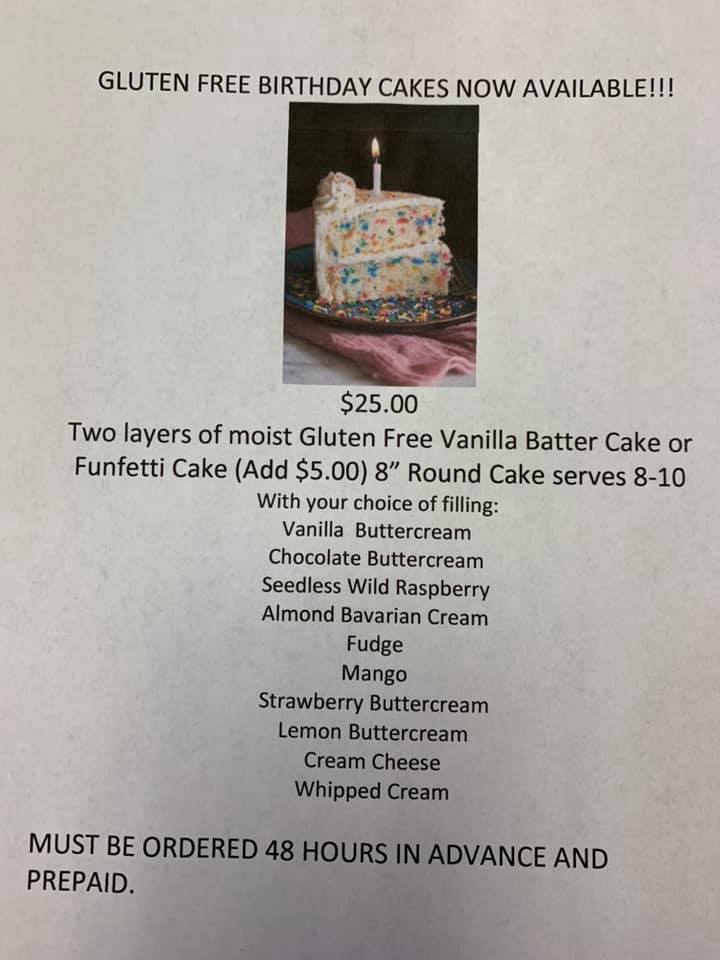 GLUTEN FREE BIRTHDAY CAKES NOW AVAILABLE!!!
$25.00
Two layers of moist Gluten Free Vanilla Batter Cake or
Funfetti Cake (Add $5.00) 8” Round Cake serves 8-10
With your choice of filling:
Vanilla Buttercream
Chocolate Buttercream
Seedless Wild Raspberry
Almond Bavarian Cream
Fudge
Mango
Strawberry Buttercream
Lemon Buttercream
Cream Cheese
Whipped Cream
MUST BE ORDERED 48 HOURS IN ADVANCE AND
PREPAID.